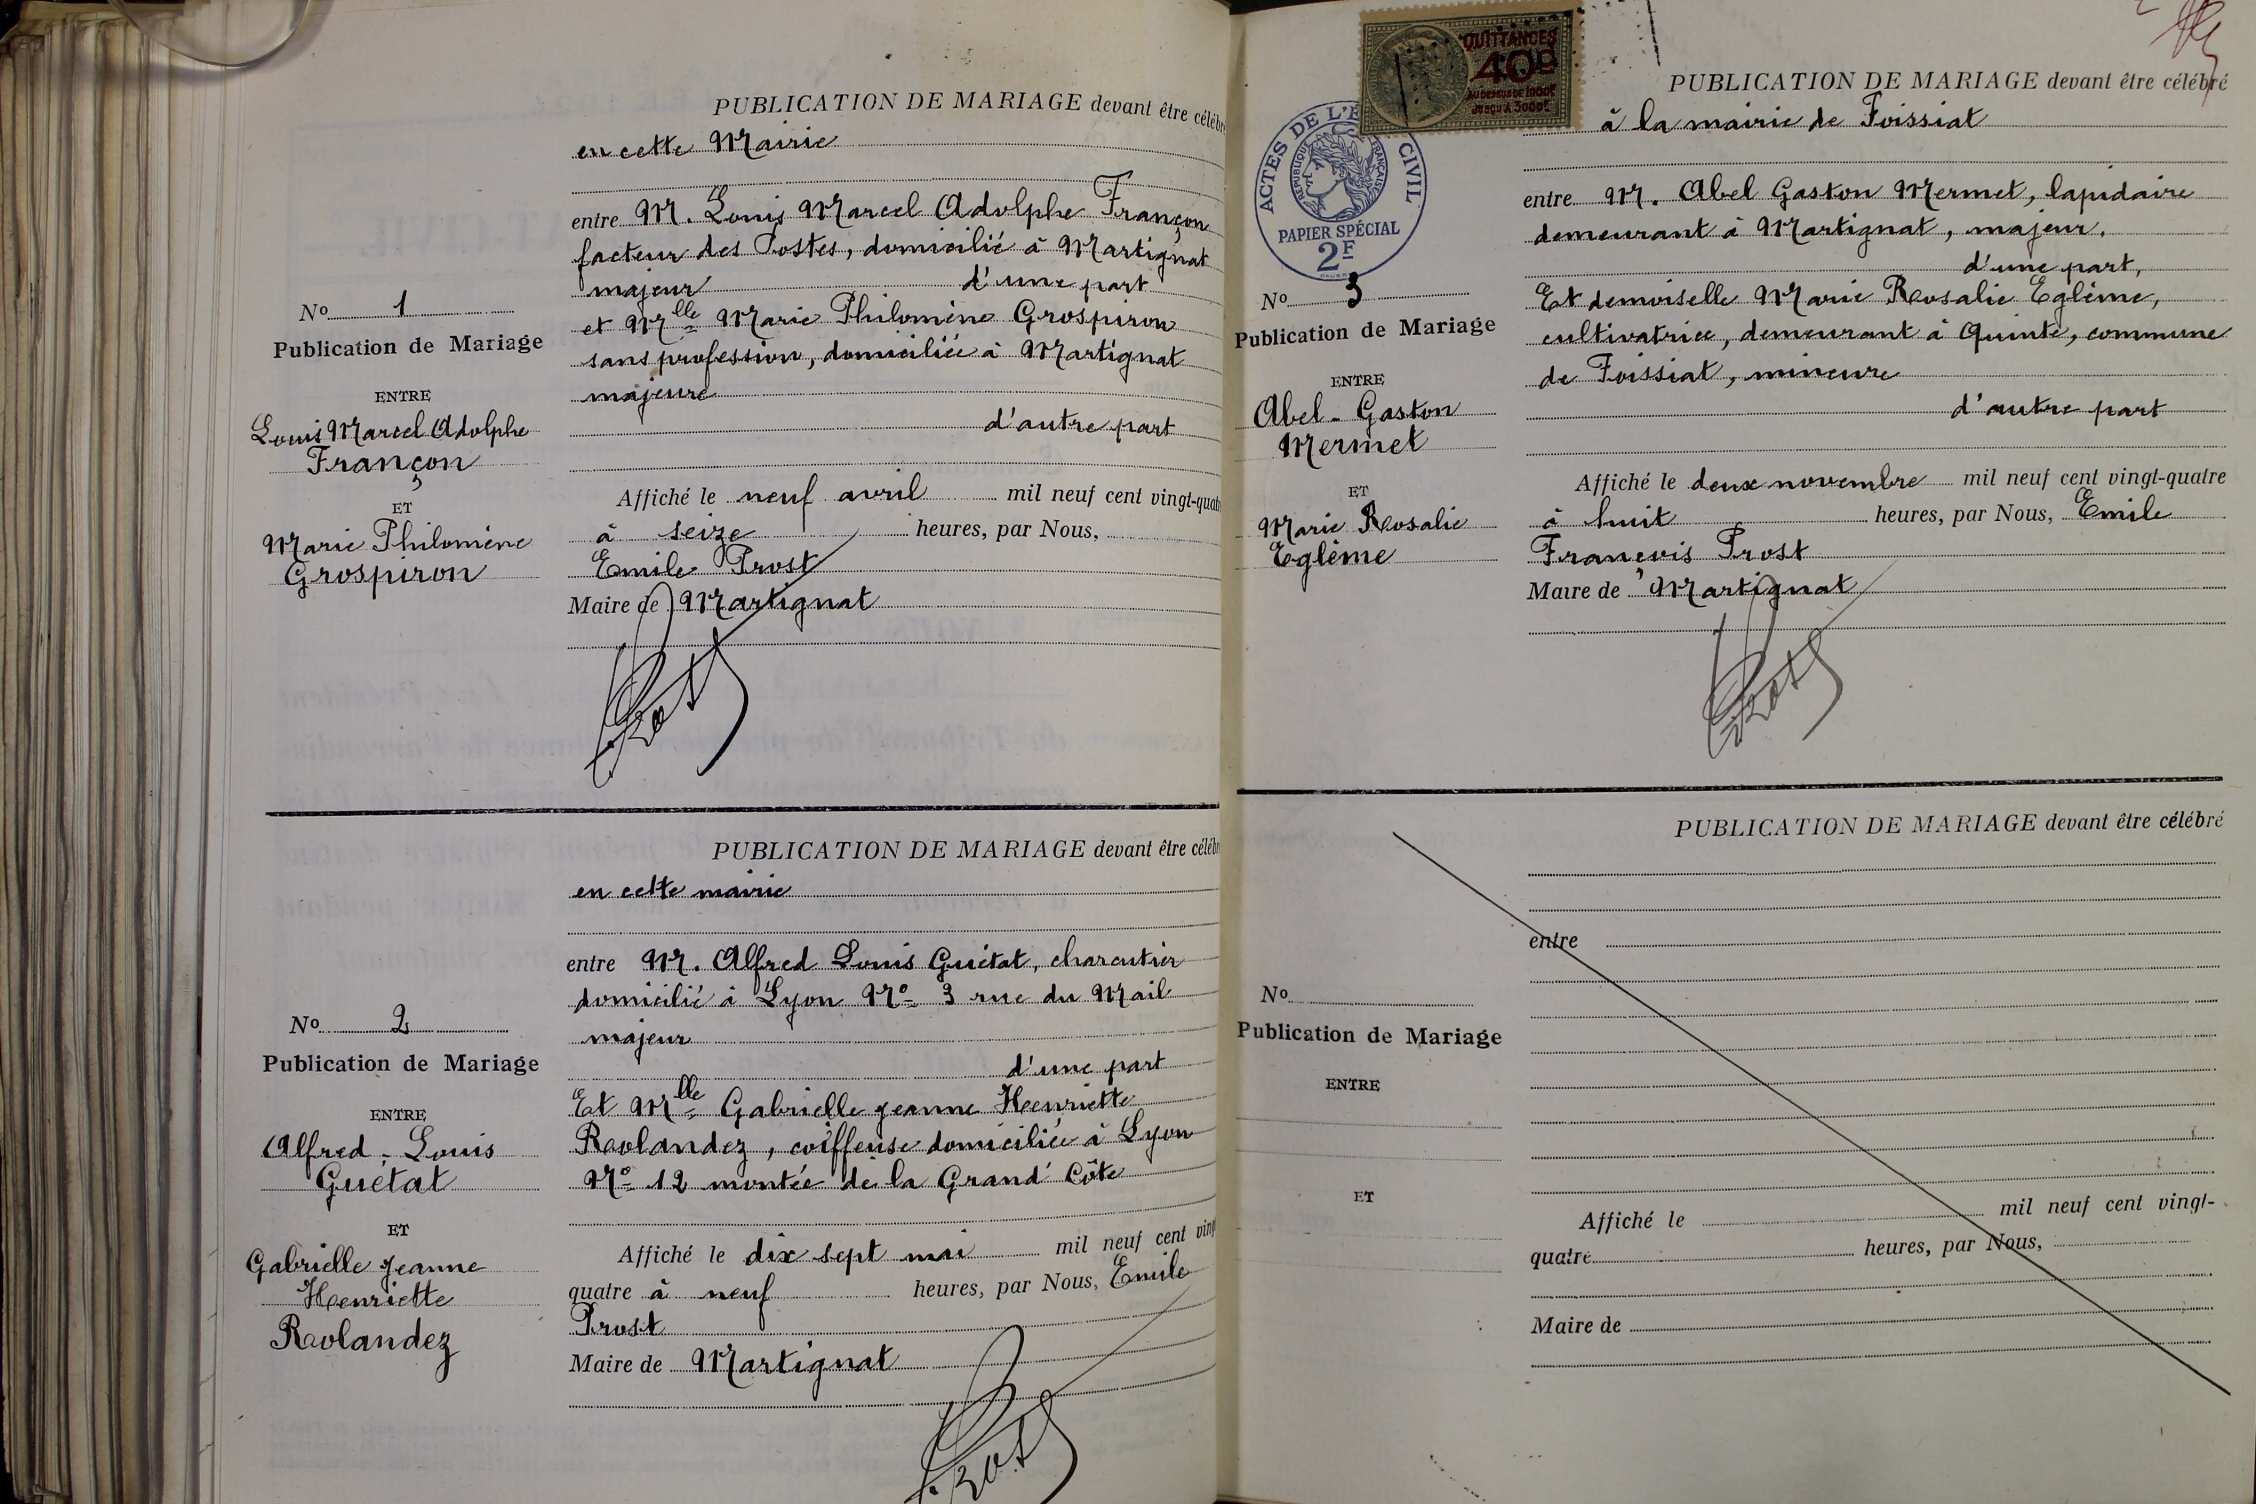 PUBLICATION DE MARIAGE devant être célébr
en cette Mairie
entre M. Louis Marcel Adolphe Françon
facteur des Postes, domicilié à Martignat
majeur d'une part
et Mlle Marie Philomène Grospiron
sans profession, domiciliée à Martignat
majeure
d'autre part
Affiché le neuf avril mil neuf cent vingt-quat
à seize heures, par Nous,
Emile Prost
Maire de Martignat
Prost
No 1
Publication de Mariage
ENTRE
Louis Marcel Adolphe
Françon
ET
Marie Philomène
Grospiron
PUBLICATION DE MARIAGE devant être célébr
en cette mairie
entre M. Alfred Louis Guétat, charcutier
domicilié à Lyon No 3 rue du Mail
majeur
d'une part
Et Mlle Gabrielle Jeanne Henriette
Rolandez, coiffeuse domiciliée à Lyon
No 12 montée de la Grand' Côte
Affiché le dix sept mai mil neuf cent ving
quatre à neuf heures, par Nous, Emile
Prost
Maire de Martignat
Prost
No 2
Publication de Mariage
ENTRE
Alfred-Louis
Guétat
ET
Gabrielle Jeanne
Henriette
Rolandez
QUITTANCES
40c
AU DESSUS DE 1000F
JUSQU'A 3000F
ACTES DE L'É CIVIL
RÉPUBLIQUE FRANÇAISE
PAPIER SPÉCIAL
2F
PUBLICATION DE MARIAGE devant être célébré
à la mairie de Foissiat
entre M. Abel Gaston Mermet, lapidaire
demeurant à Martignat, majeur.
d'une part,
Et demoiselle Marie Rosalie Eglème,
cultivatrice, demeurant à Quinte, commune
de Foissiat, mineure
d'autre part
Affiché le deux novembre mil neuf cent vingt-quatre
à huit heures, par Nous, Emile
François Prost
Maire de Martignat
Prost
No 3
Publication de Mariage
ENTRE
Abel-Gaston
Mermet
ET
Marie Rosalie
Eglème
PUBLICATION DE MARIAGE devant être célébré
entre
Affiché le mil neuf cent vingt-
quatre heures, par Nous,
Maire de
No
Publication de Mariage
ENTRE
ET